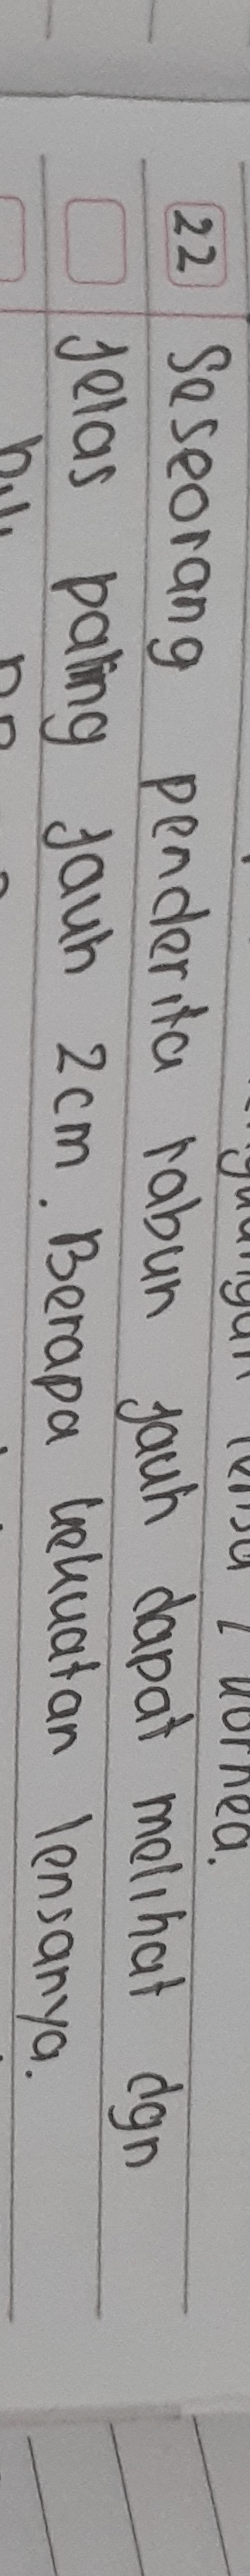 lensa / kornea.
22 Seseorang penderita rabun jauh dapat melihat dgn
jelas paling jauh 2cm. Berapa kekuatan lensanya.